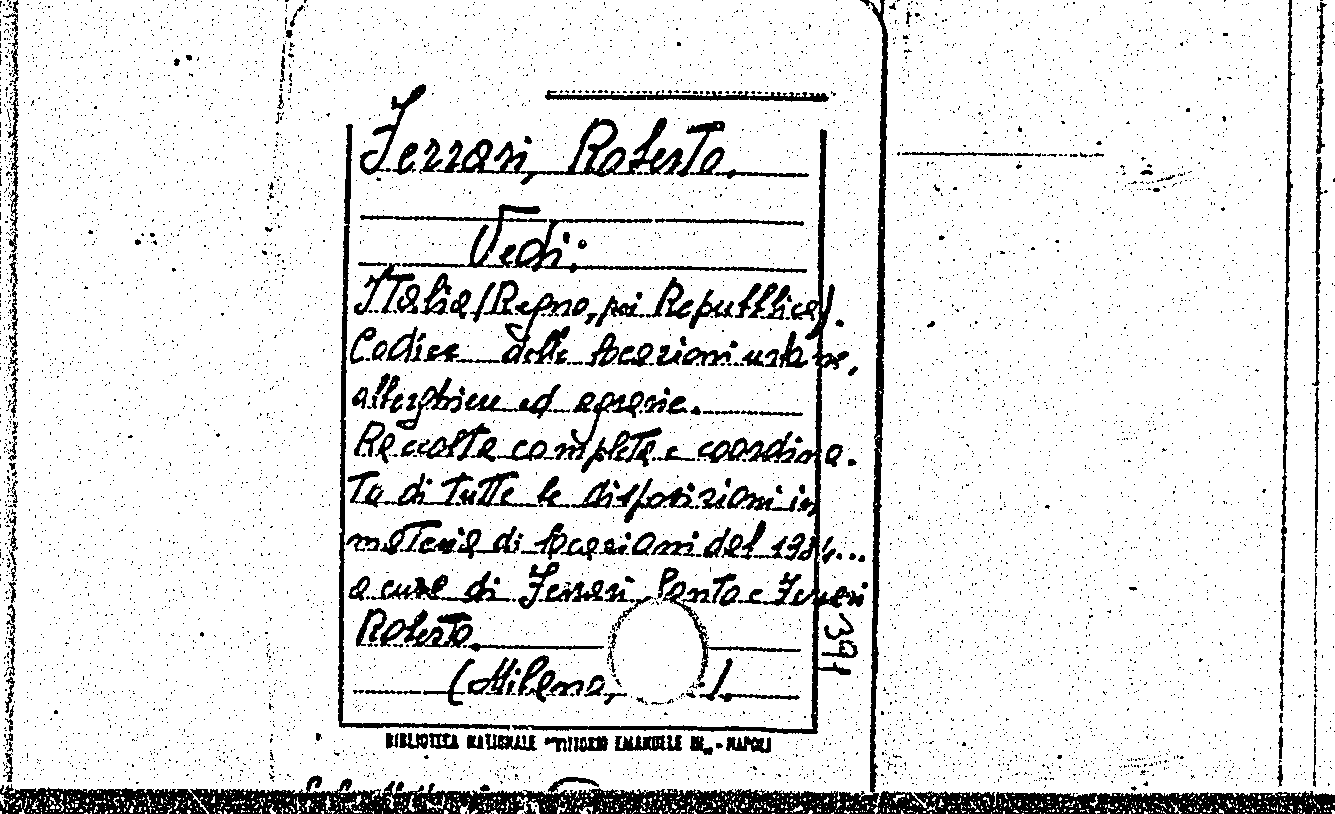 Ferrari, Roberto.
Vedi:
Italia (Regno, poi Repubblica).
Codice delle locazioni urbane,
alberghiere ed agrarie.
Raccolta completa e coordina-
ta di tutte le disposizioni in
materia di locazioni dal 1934...
a cura di Ferrari Santo e Ferrari
Roberto.
(Milano, ).
391
BIBLIOTECA NAZIONALE "VITTORIO EMANUELE III" - NAPOLI